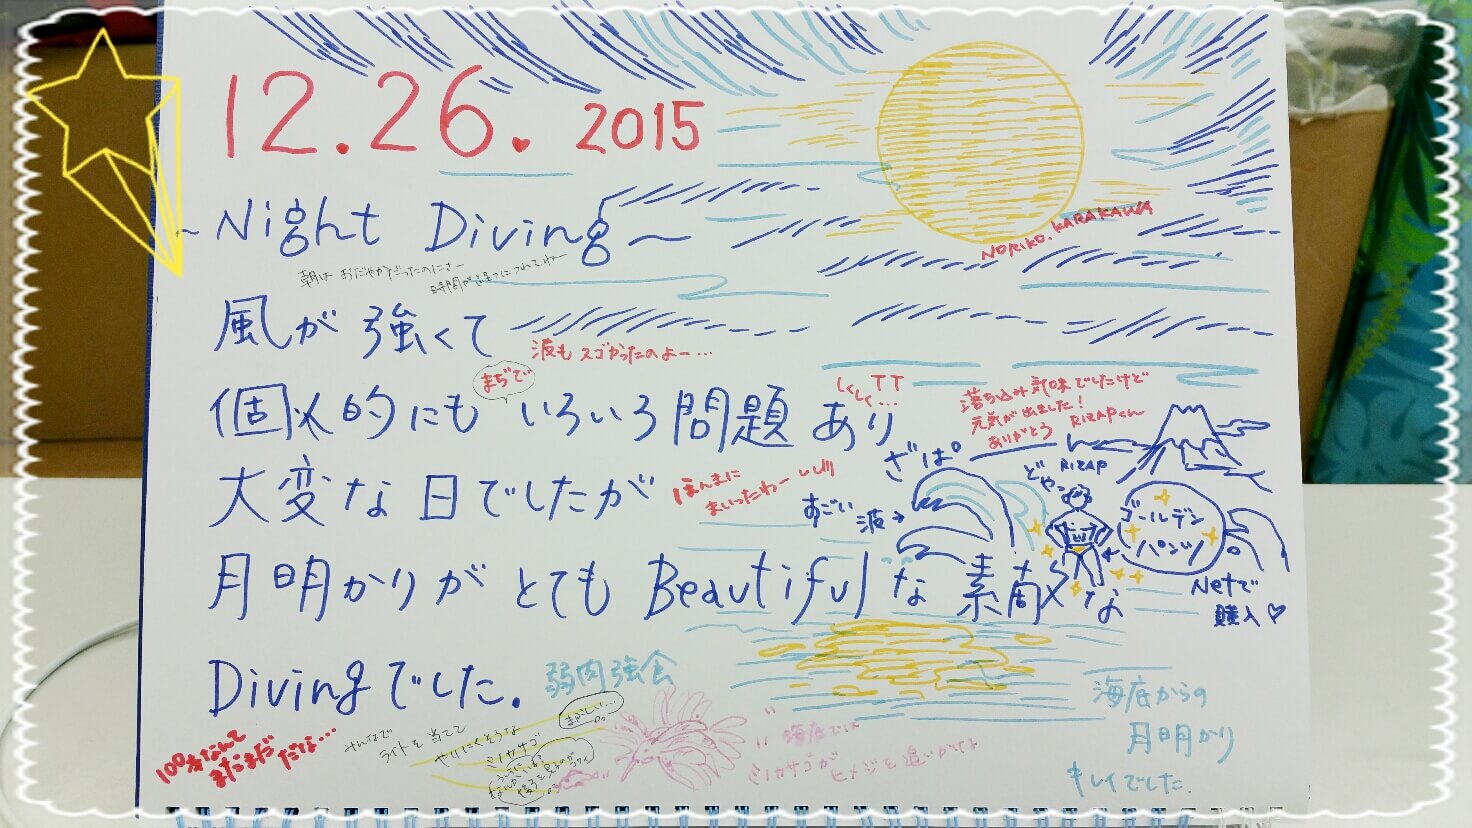 12.26. 2015
~Night Diving~
NORIKO.KARAKAWA
朝は おだやかだったのにさー
時間が
風が強くて
波もスゴかったのよー…
まぢで
個人的にも いろいろ問題あり
しくしく… TT
落ち込み気味でしたけど
元気が出ました!
ありがとう RIZAPくん
大変な日でしたが
ほんまに
まいったわー
ざぱ°
すごい 波→
どやっ
RIZAP
ゴールデン
パンツ
Netで
購入♡
月明かりがとても Beautifulな素敵な
Divingでした。
弱肉強食
100本なんて
まだまだ
だな…
みんなで
ライトを当てて
やりにくそうな
ミノカサゴ
まぶしい…
海底では
ミノカサゴが
ヒメジを追いかけ
海底からの
月明かり
キレイでした.